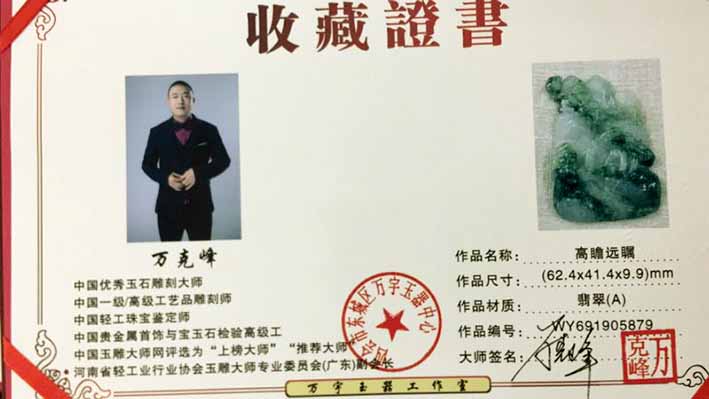 收藏證書
万克峰
中国优秀玉石雕刻大师
中国一级/高级工艺品雕刻师
中国轻工珠宝鉴定师
中国贵金属首饰与宝玉石检验高级工
中国玉雕大师网评选为“上榜大师”“推荐大师”
河南省轻工业行业协会玉雕大师专业委员会(广东)副会长
四会市东城区万宇玉器中心
作品名称: 高瞻远瞩
作品尺寸: (62.4x41.4x9.9)mm
作品材质: 翡翠(A)
作品编号: WY691905879
大师签名:
万克峰
万宇玉器工作室